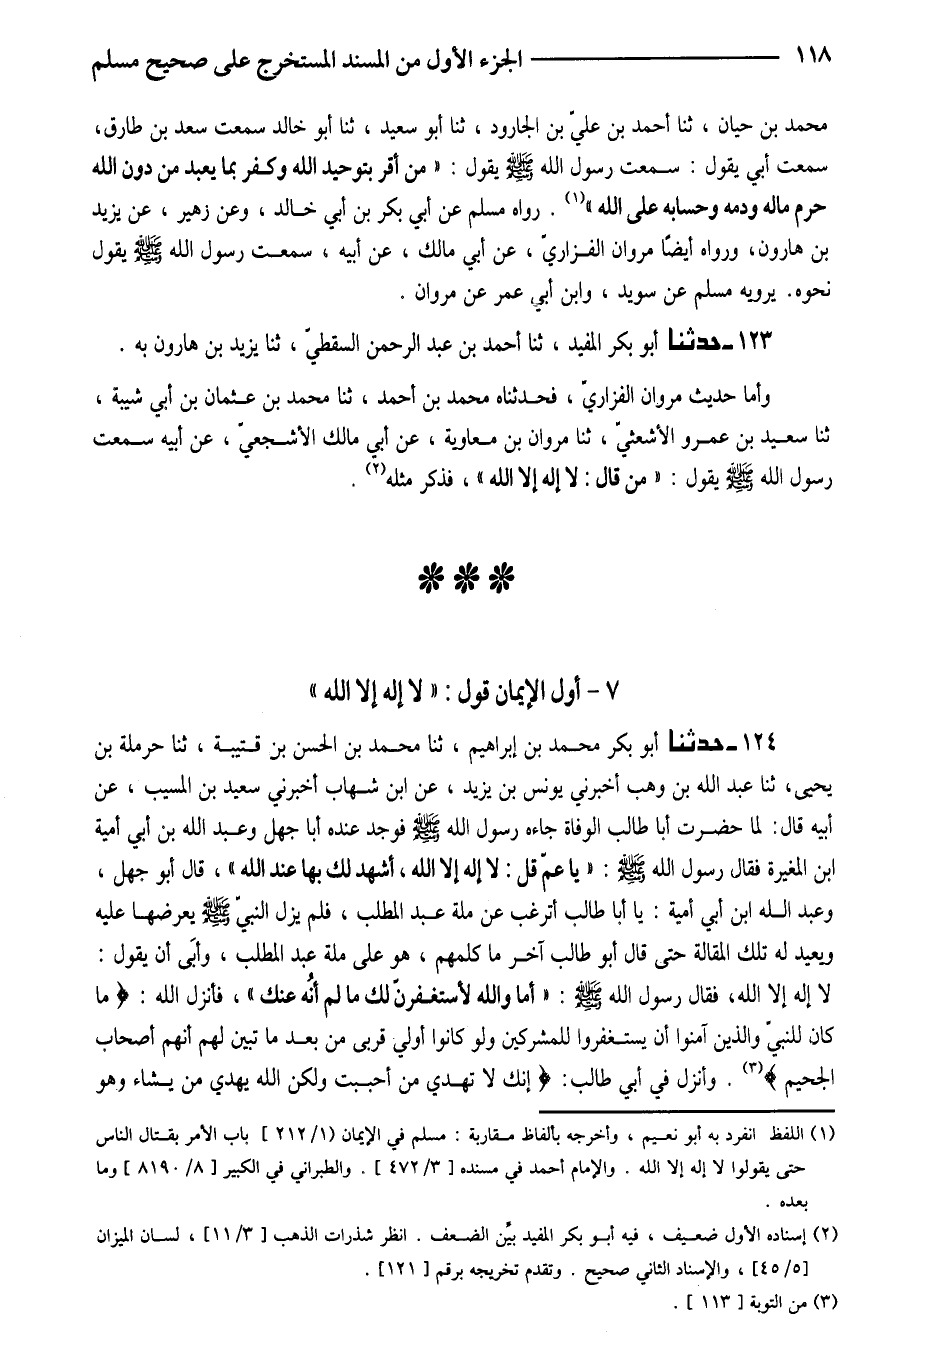 ١١٨ ــــــــ الجزء الأول من المسند المستخرج على صحيح مسلم
محمد بن حيان ، ثنا أحمد بن عليّ بن الجارود ، ثنا أبو سعيد ، ثنا أبو خالد سمعت سعد بن طارق،
سمعت أبي يقول : سمعت رسول الله ﷺ يقول : « من أقر بتوحيد الله وكفر بما يعبد من دون الله
حرم ماله ودمه وحسابه على الله »(١) . رواه مسلم عن أبي بكر بن أبي خالد ، وعن زهير ، عن يزيد
بن هارون، ورواه أيضًا مروان الفزاريّ ، عن أبي مالك ، عن أبيه ، سمعت رسول الله ﷺ يقول
نحوه. يرويه مسلم عن سويد ، وابن أبي عمر عن مروان .
١٢٣ـ حدثنا أبو بكر المفيد ، ثنا أحمد بن عبد الرحمن السقطيّ ، ثنا يزيد بن هارون به .
وأما حديث مروان الفزاريّ ، فحدثناه محمد بن أحمد ، ثنا محمد بن عثمان بن أبي شيبة ،
ثنا سعيد بن عمرو الأشعثيّ ، ثنا مروان بن معاوية ، عن أبي مالك الأشجعيّ ، عن أبيه سمعت
رسول الله ﷺ يقول : « من قال : لا إله إلا الله » ، فذكر مثله(٢) .
٧ - أول الإيمان قول : « لا إله إلا الله »
١٢٤ـ حدثنا أبو بكر محمد بن إبراهيم ، ثنا محمد بن الحسن بن قتيبة ، ثنا حرملة بن
يحيى، ثنا عبد الله بن وهب أخبرني يونس بن يزيد ، عن ابن شهاب أخبرني سعيد بن المسيب ، عن
أبيه قال: لما حضرت أبا طالب الوفاة جاءه رسول الله ﷺ فوجد عنده أبا جهل وعبد الله بن أبي أمية
ابن المغيرة فقال رسول الله ﷺ : « يا عمّ قل : لا إله إلا الله ، أشهد لك بها عند الله » ، قال أبو جهل ،
وعبد الله ابن أبي أمية : يا أبا طالب أترغب عن ملة عبد المطلب ، فلم يزل النبيّ ﷺ يعرضها عليه
ويعيد له تلك المقالة حتى قال أبو طالب آخر ما كلمهم ، هو على ملة عبد المطلب ، وأبَى أن يقول :
لا إله إلا الله، فقال رسول الله ﷺ : « أما والله لأستغفرنّ لك ما لم أنُه عنك » ، فأنزل الله : ﴿ ما
كان للنبيّ والذين آمنوا أن يستغفروا للمشركين ولو كانوا أولي قربى من بعد ما تبين لهم أنهم أصحاب
الجحيم ﴾(٣) . وأنزل في أبي طالب: ﴿ إنك لا تهدي من أحببت ولكن الله يهدي من يشاء وهو
(١) اللفظ انفرد به أبو نعيم ، وأخرجه بألفاظ مقاربة : مسلم في الإيمان (٢١٢/١ ] باب الأمر بقتال الناس
حتى يقولوا لا إله إلا الله . والإمام أحمد في مسنده [ ٤٧٢/٣ ] . والطبراني في الكبير [ ٨١٩٠/٨ ] وما
بعده .
(٢) إسناده الأول ضعيف ، فيه أبو بكر المفيد بيِّن الضعف . انظر شذرات الذهب [ ١١/٣] ، لسان الميزان
[٤٥/٥] ، والإسناد الثاني صحيح . وتقدم تخريجه برقم [ ١٢١] .
(٣) من التوبة [ ١١٣ ] .